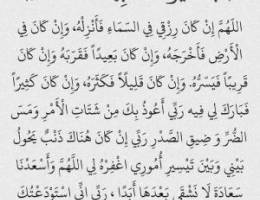 اللَّهُمَّ إِنْ كَانَ رِزْقِي فِي السَّمَاءِ فَأَنْزِلْهُ، وَإِنْ كَانَ فِي
الْأَرْضِ فَأَخْرِجْهُ، وَإِنْ كَانَ بَعِيداً فَقَرِّبْهُ وَإِنْ كَانَ
قَرِيباً فَيَسِّرْهُ. وَإِنْ كَانَ قَلِيلاً فَكَثِّرْهُ، وَإِنْ كَانَ كَثِيرًا
فَبَارِكْ لِي فِيه رَبِّي أَعُوذُ بِكَ مِنْ شَتَاتِ الْأَمْرِ وَمَسِّ
الضُّرِّ وَ ضِيقِ الصَّدْرِ رَبِّي إِنْ كَانَ هُنَاكَ ذَنْبٌ يَحُولُ
بَيْنِي وَبَيْنَ تَيْسِيرِ أُمُورِي اغْفِرْهُ لِي اللَّهُمَّ وَأَسْعِدْنَا
سَعَادَةً لَا نَشْقَى بَعْدَهَا أَبَدًا ، رَبِّي إِنِّي اسْتَوْدَعْتُكَ